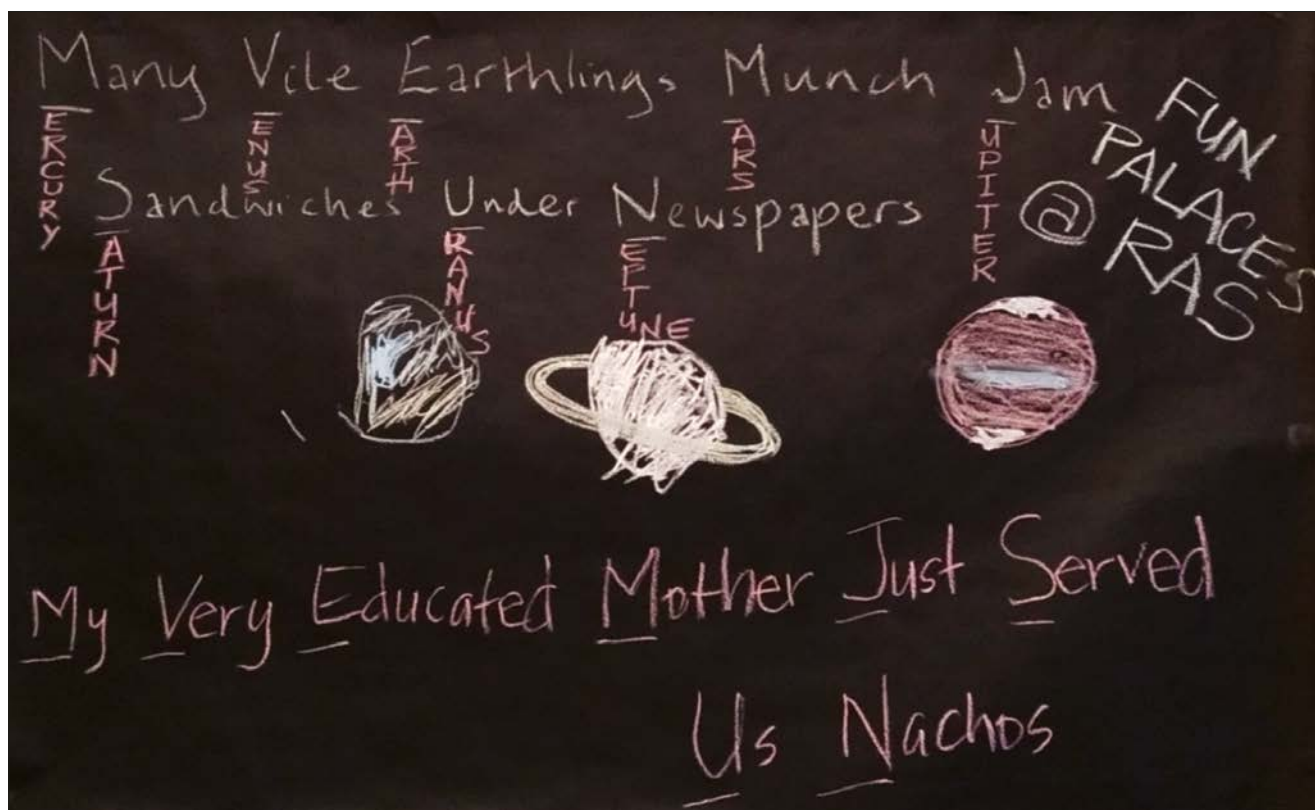 Many Vile Earthlings Munch Jam
ERCURY
ENUS
ARTH
ARS
UPITER
Sandwiches Under Newspapers
ATURN
RANUS
EPTUNE
FUN
PALACES
@ RAS
My Very Educated Mother Just Served
Us Nachos